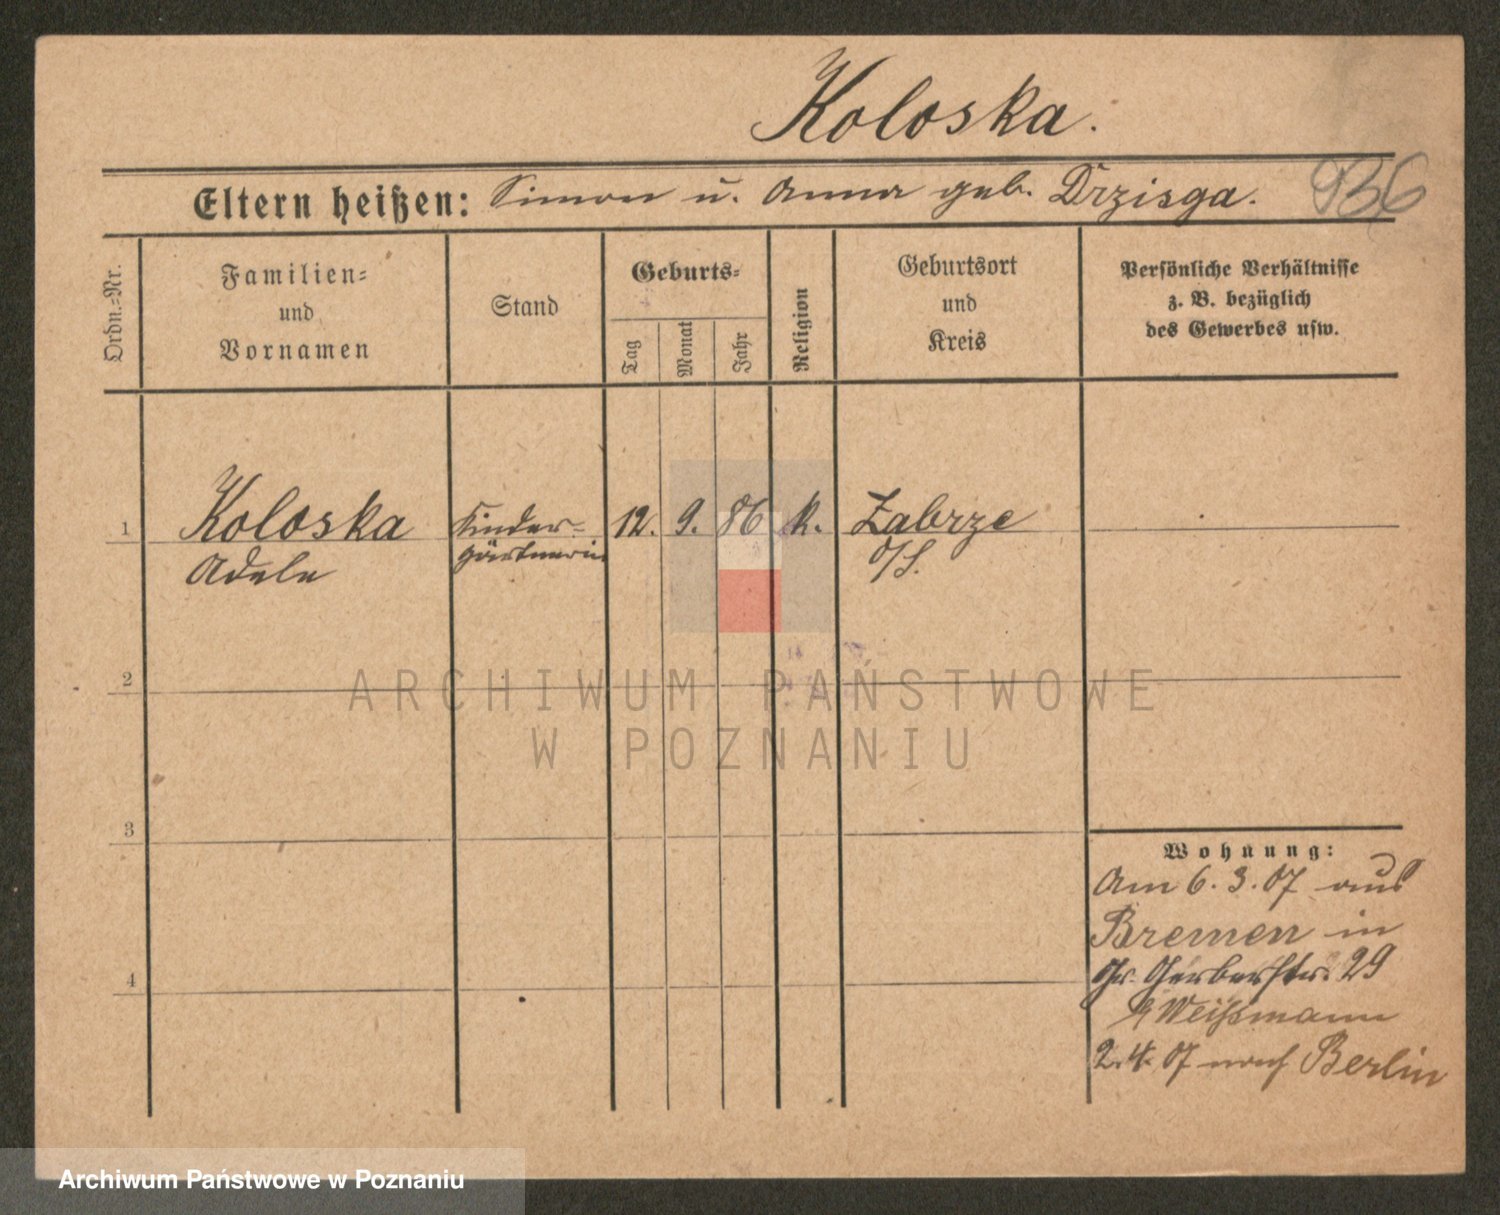 Koloska.
Eltern heißen: Simon u. Anna geb. Drzisga.
936
Ordn.=Nr.
Familien=
und
Vornamen
Stand
Geburts=
Tag
Monat
Jahr
Religion
Geburtsort
und
Kreis
Persönliche Verhältnisse
z. B. bezüglich
des Gewerbes usw.
1 Koloska Kinder= 12. 9. 86 k. Zabrze
Adele gärtnerin O/S.
ARCHIWUM PAŃSTWOWE
W POZNANIU
2
3
4
Wohnung:
Am 6.3.07 aus
Bremen in
Gr. Gerberstr. 29
Weißmann
2.4.07 nach Berlin
Archiwum Państwowe w Poznaniu